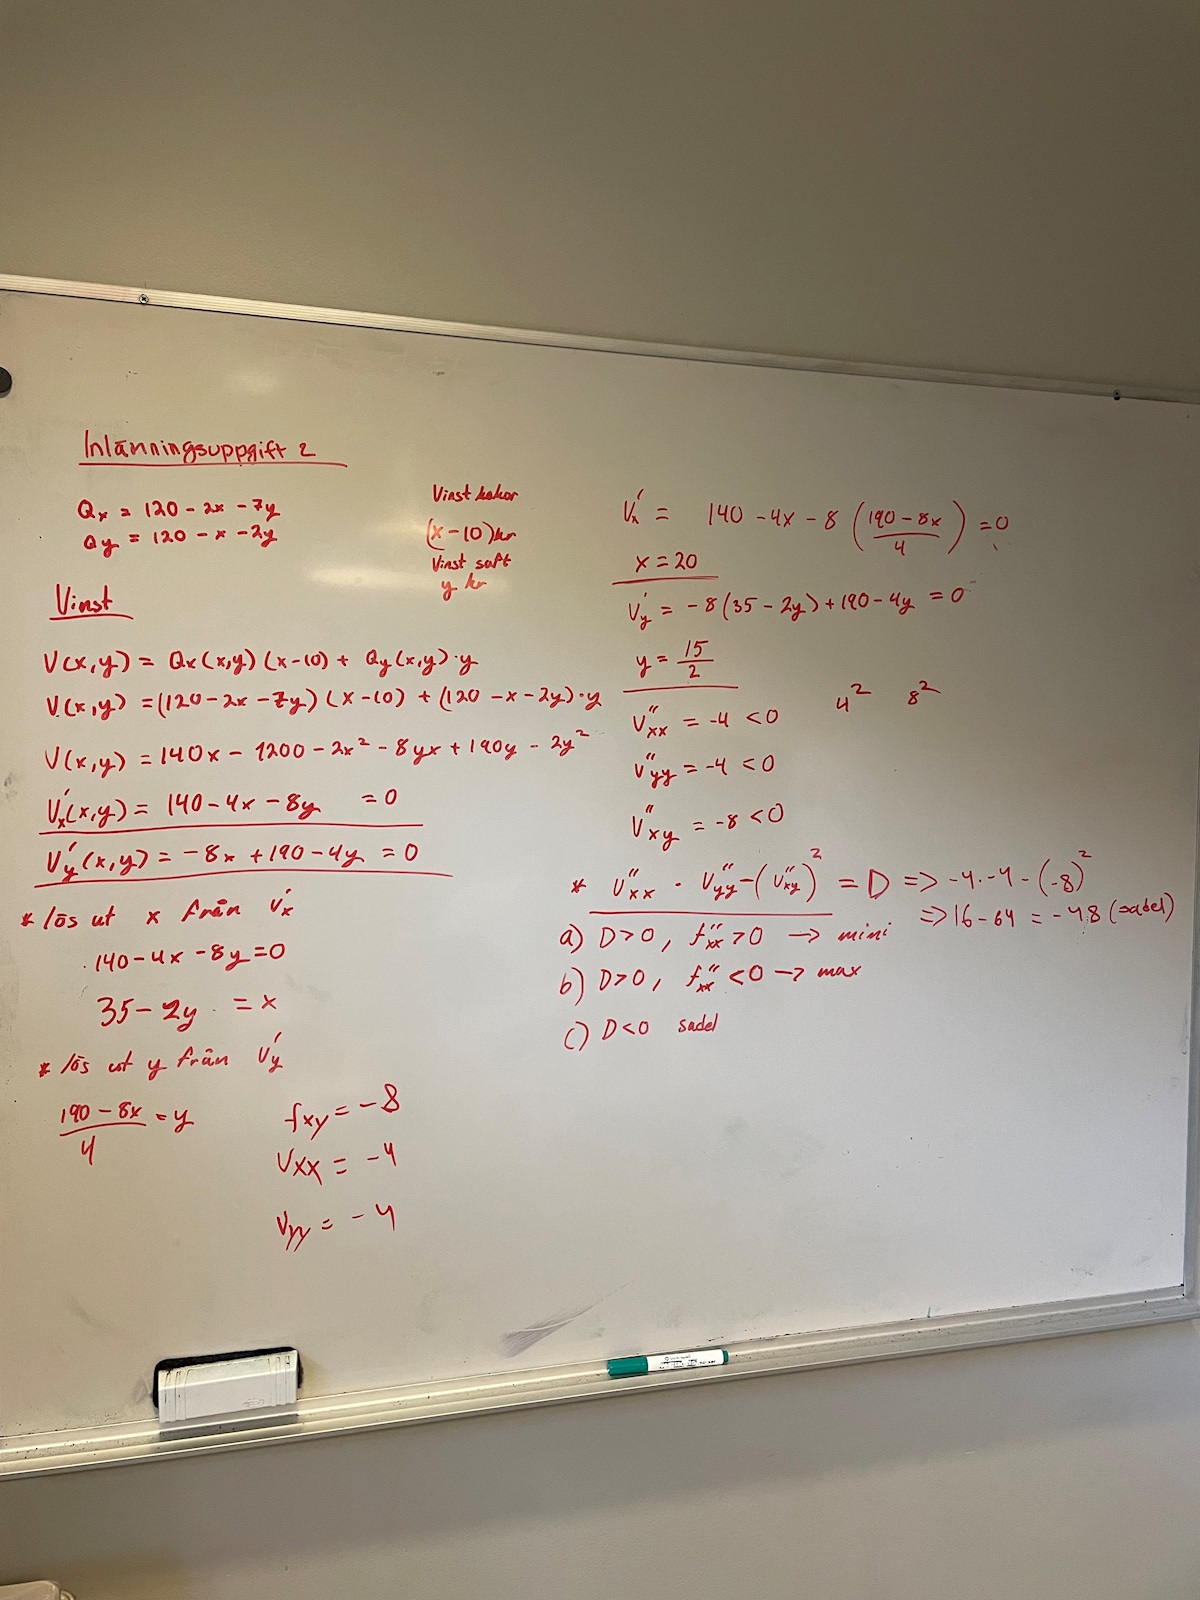 Inlämningsuppgift 2
Qx = 120 - 2x - 7y
Qy = 120 - x - 2y
Vinst kakor
(x-10)kr
Vinst saft
y kr
Vinst
V(x,y) = Qx(x,y)(x-10) + Qy(x,y)·y
V(x,y) = (120-2x-7y)(x-10) + (120-x-2y)·y
V(x,y) = 140x - 1200 - 2x² - 8yx + 190y - 2y²
V'x(x,y) = 140-4x-8y = 0
V'y(x,y) = -8x+190-4y = 0
* lös ut x från V'x
140-4x-8y=0
35-2y = x
* lös ut y från V'y
(190-8x)/4 = y
fxy = -8
Vxx = -4
Vyy = -4
V'x = 140-4x-8((190-8x)/4) = 0
x = 20
V'y = -8(35-2y)+190-4y = 0
y = 15/2
V''xx = -4 < 0
4² 8²
V''yy = -4 < 0
V''xy = -8 < 0
* V''xx · V''yy - (V''xy)² = D => -4·-4-(-8)²
=> 16-64 = -48 (sadel)
a) D>0, f''xx>0 → mini
b) D>0, f''xx<0 → max
c) D<0 sadel